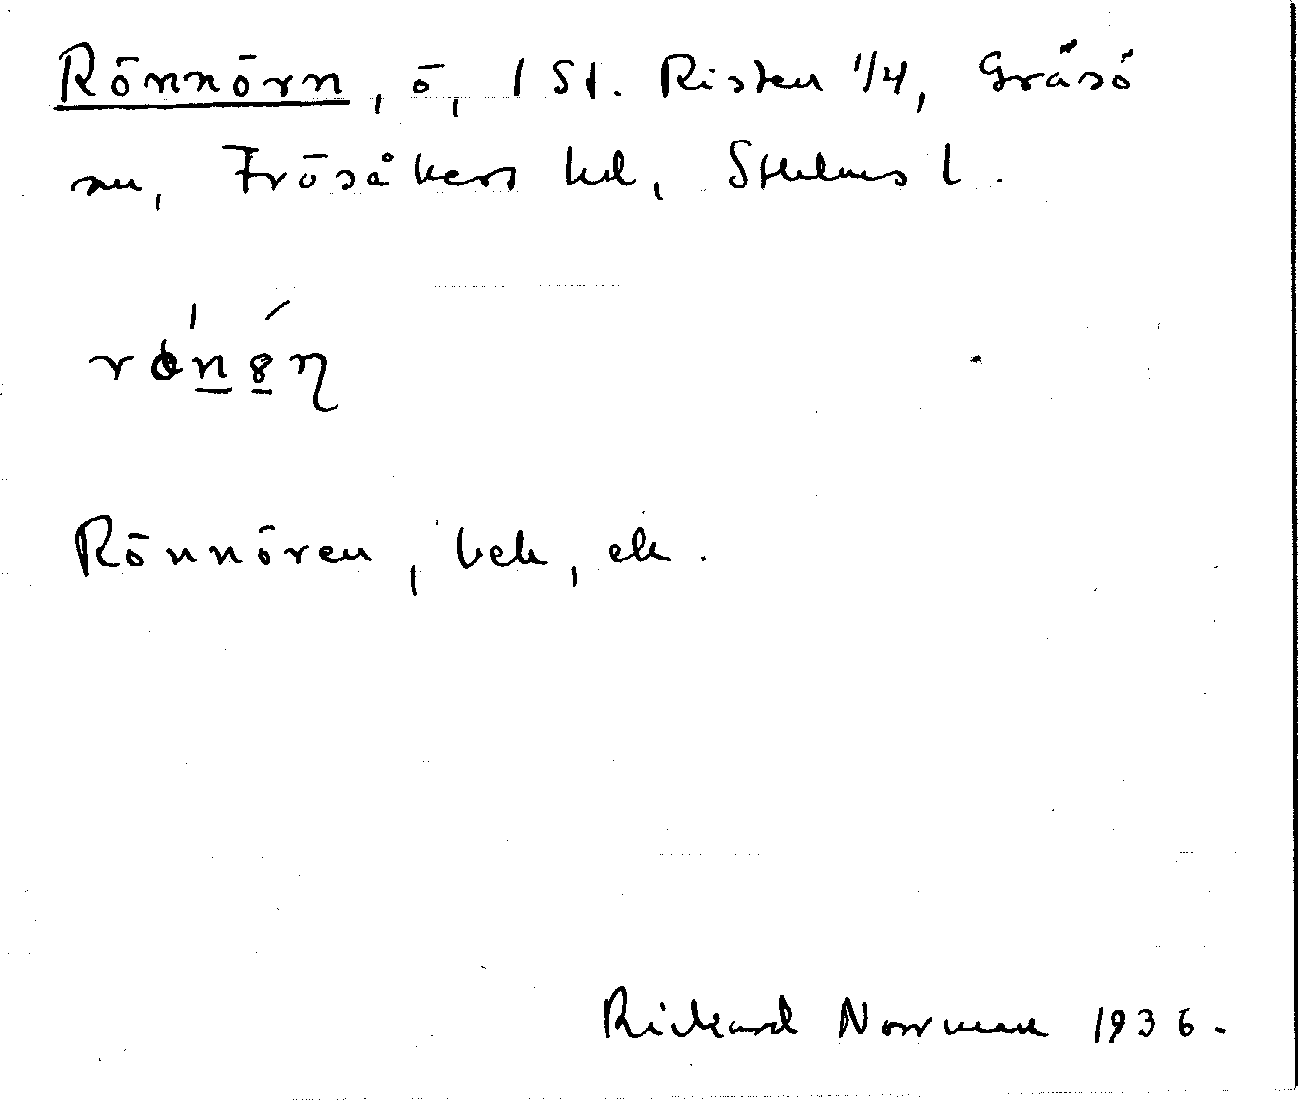 Rönnörn, ö, 1 St. Risten 1/4, Gräsö
sn, Frösåkers hd, Sthlms l.
Rönnören, bek, ek.
Rickard Norrman 1936.